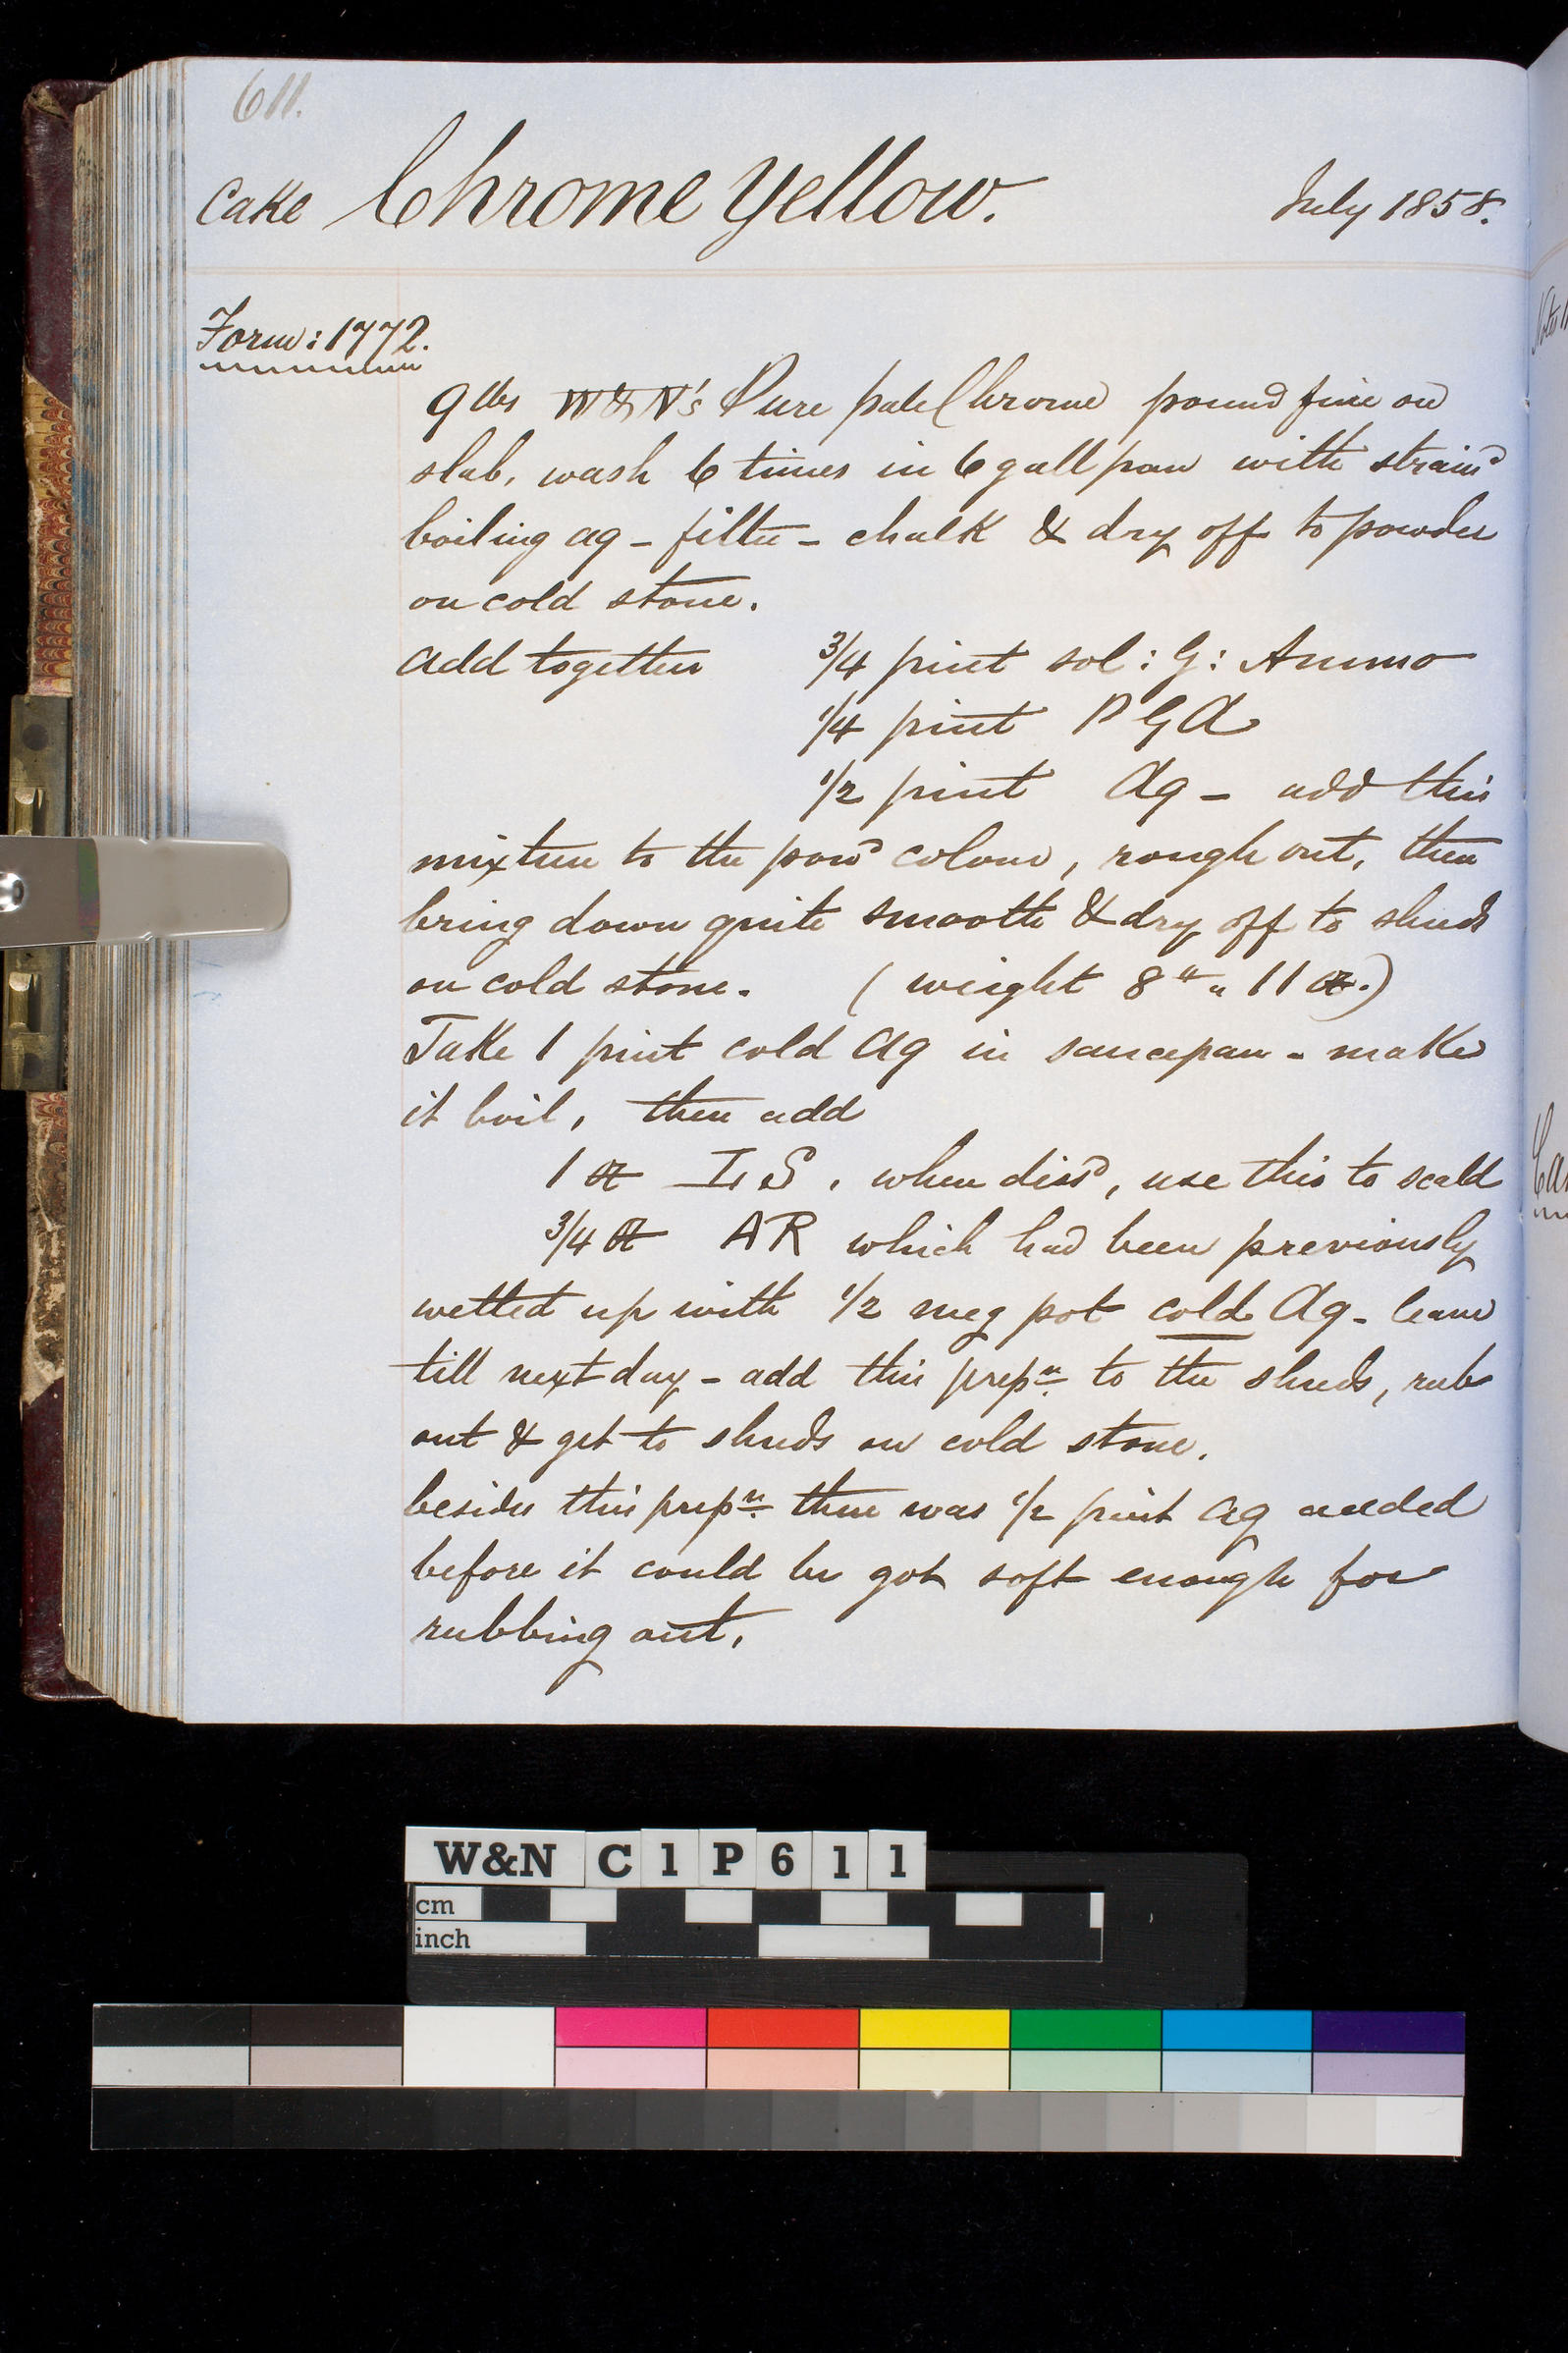 611.
Cake Chrome Yellow. July 1858.
Form: 1772.
9 lbs W&N's Pure pale Chrome pound fine on
slab, wash 6 times in 6 gall pan with strain^d
boiling aq - filter - chalk & dry off to powder
on cold stone.
add together 3/4 pint sol: G: Ammo
1/4 pint P G A
1/2 pint Aq - add this
mixture to the pow^d colour, rough out, then
bring down quite smooth & dry off to shreds
on cold stone. (weight 8 lb " 11 oz.)
Take 1 pint cold Aq in saucepan - make
it boil, then add
1 oz L S, when diss^d, use this to scald
3/4 oz AR which had been previously
wetted up with 1/2 meg pot cold Aq - leave
till next day - add this prep^n. to the shreds, rub
out & get to shreds on cold stone.
besides this prep^n. there was 1/2 pint aq needed
before it could be got soft enough for
rubbing out.
W&N C1P611
cm
inch